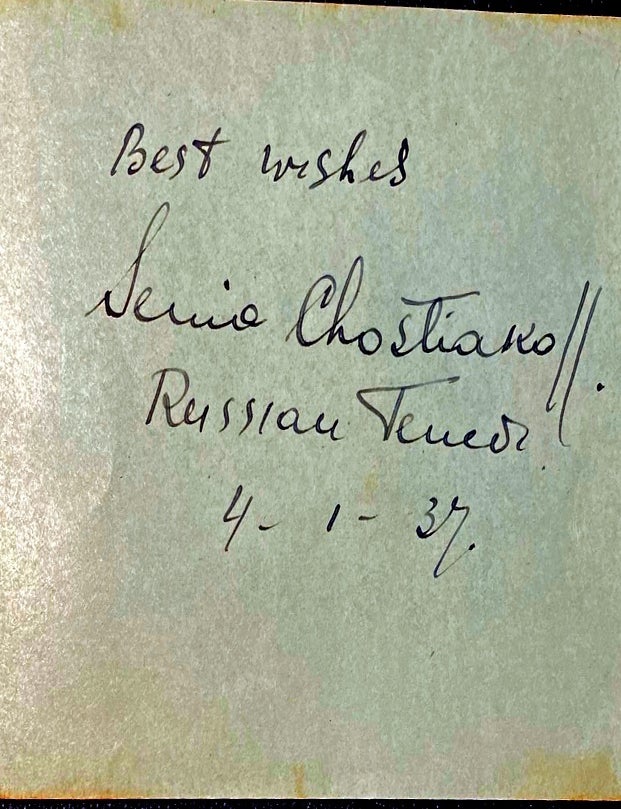 Best wishes
Senia Chostiakoff.
Russian Tenor.
4-1-37.